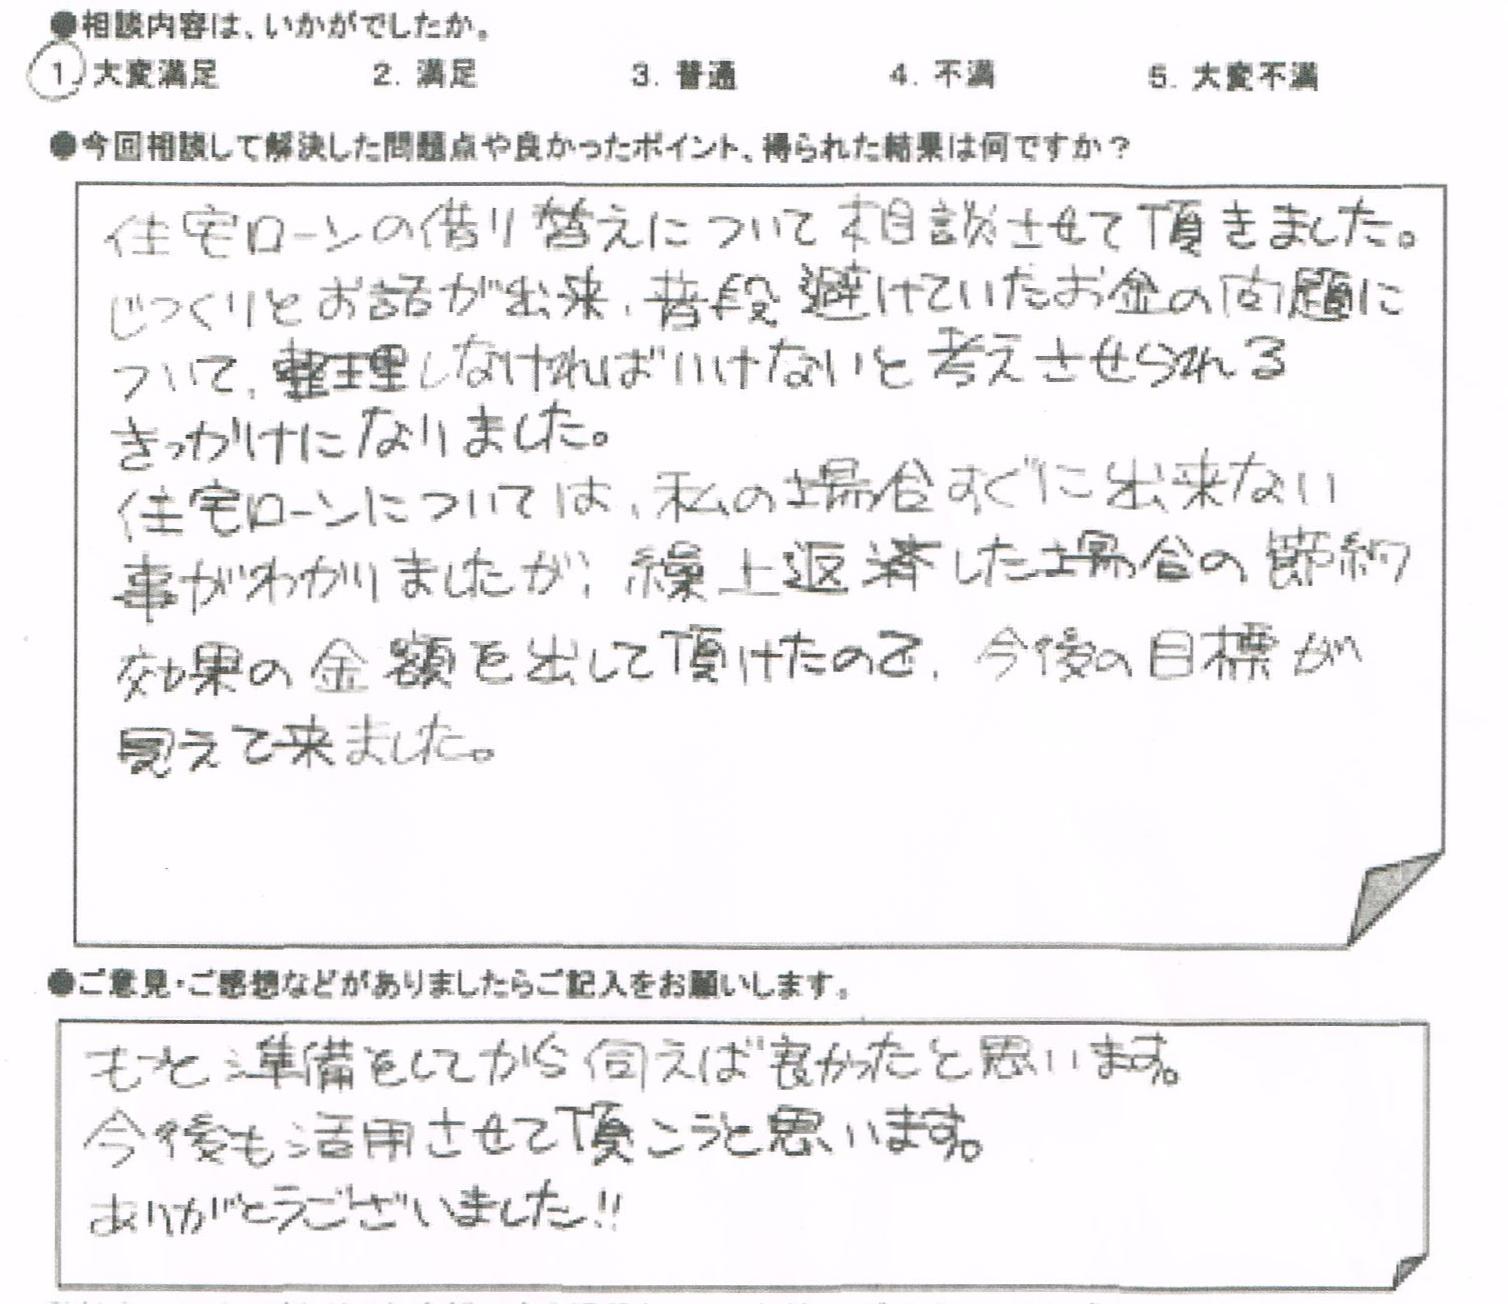 ●相談内容は、いかがでしたか。
1. 大変満足 2. 満足 3. 普通 4. 不満 5. 大変不満
●今回相談して解決した問題点や良かったポイント、得られた結果は何ですか？
住宅ローンの借り替えについて相談させて頂きました。
じっくりとお話が出来、普段避けていたお金の問題に
ついて、整理しなければいけないと考えさせられる
きっかけになりました。
住宅ローンについては、私の場合すぐに出来ない
事がわかりましたが、繰上返済した場合の節約
効果の金額を出して頂けたので、今後の目標が
見えて来ました。
●ご意見・ご感想などがありましたらご記入をお願いします。
もっと準備をしてから伺えば良かったと思います。
今後も活用させて頂こうと思います。
ありがとうございました!!